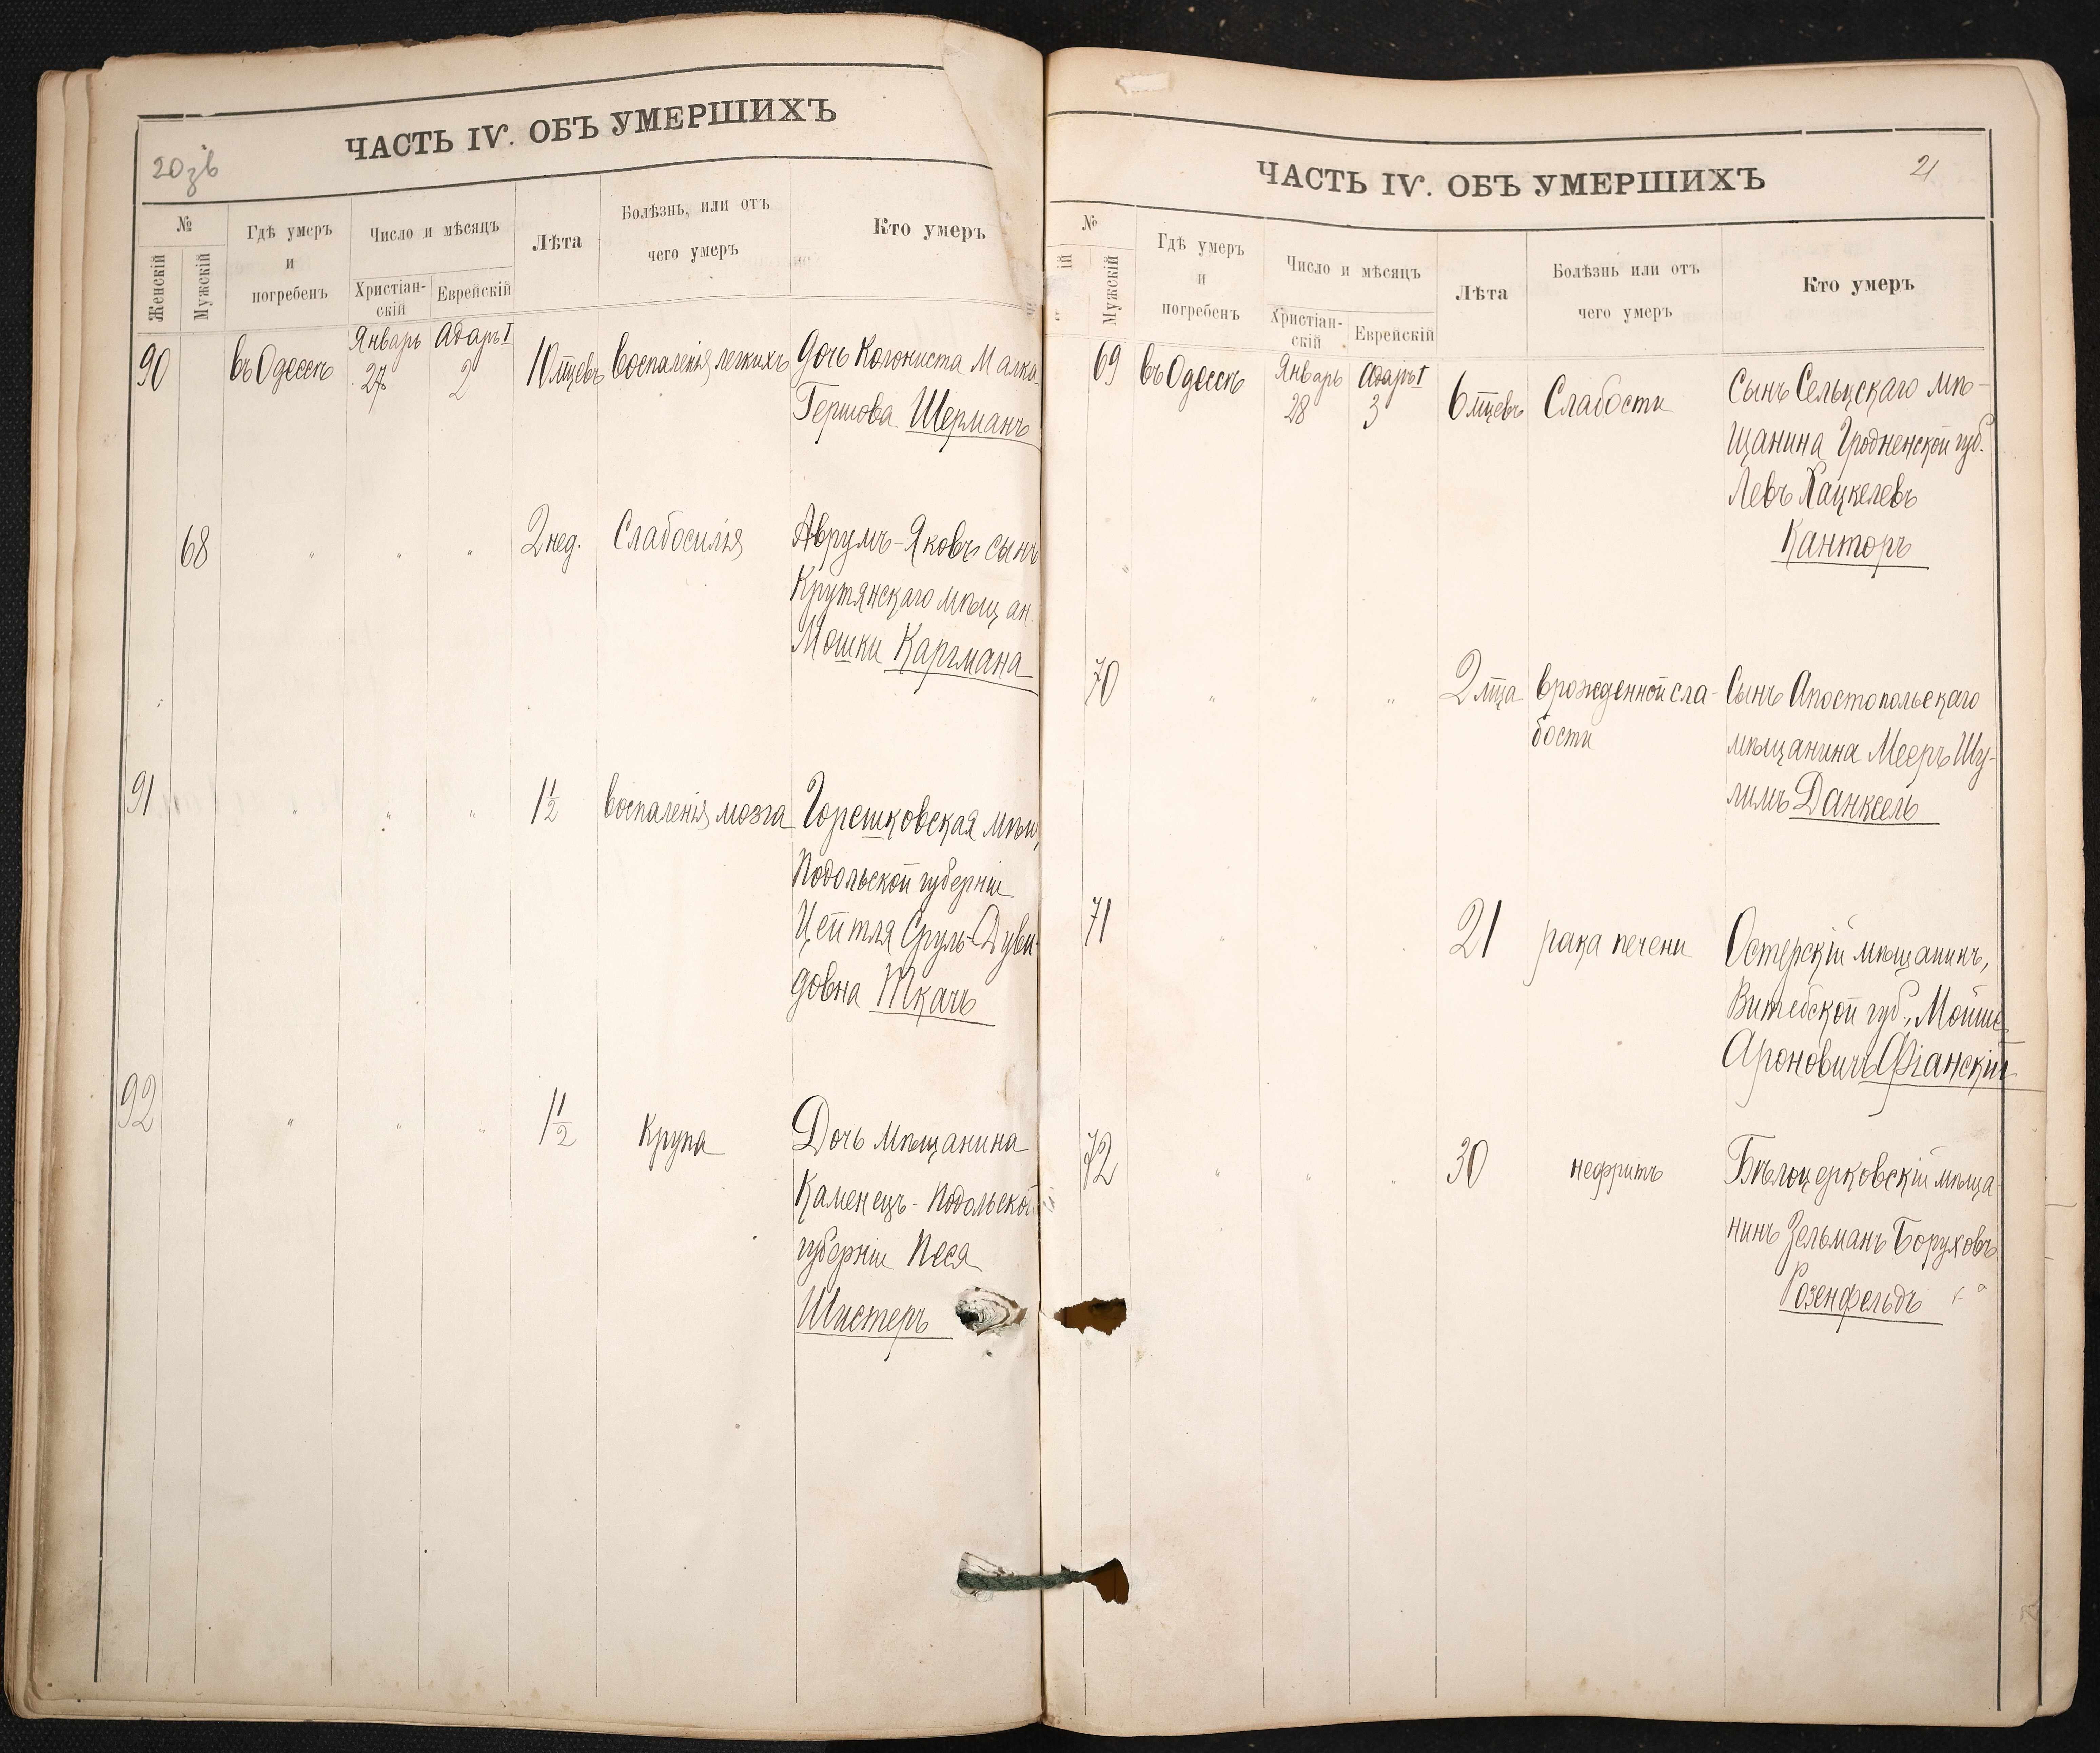 20 зв
ЧАСТЬ IV. ОБЪ УМЕРШИХЪ
№
Женскій
Мужскій
Гдѣ умеръ
и
погребенъ
Число и мѣсяцъ
Христіан-
скій
Еврейскій
Лѣта
Болѣзнь, или отъ
чего умеръ
Кто умеръ
90
въ Одессѣ
Январь
27
Адаръ I
2
10 мцевъ
воспаленія легкихъ
дочь Колониста Малка
Гершова Шерманъ
68
" " "
2 нед.
Слабосилія
Аврумъ-Яковъ сынъ
Крутянскаго мѣщан.
Мошки Каргмана
91
" " "
1 1/2
воспаленія мозга
Горешковская мѣщ.
Подольской губерніи
Цейтля Сруль-Дуви-
довна Ткачъ
92
" " "
1 1/2
крупа
Дочь мѣщанина
Каменецъ-Подольской
губерніи Песя
Шистеръ
21
ЧАСТЬ IV. ОБЪ УМЕРШИХЪ
№
ій
Мужскій
Гдѣ умеръ
и
погребенъ
Число и мѣсяцъ
Христіан-
скій
Еврейскій
Лѣта
Болѣзнь или отъ
чего умеръ
Кто умеръ
69
въ Одессѣ
Январь
28
Адаръ I
3
6 мцевъ
Слабости
Сынъ Сельцскаго мѣ-
щанина Гродненской губ.
Левъ Хацкелевъ
Канторъ
70
" " "
2 мца
врожденной сла-
бости
Сынъ Апостопольскаго
мѣщанина Мееръ Шу-
лимъ Данксель
71
" " "
21
рака печени
Остерскій мѣщанинъ,
Витебской губ., Мойше
Ароновичъ Фіанскій
72
" " "
30
нефритъ
Бѣлоцерковскій мѣща-
нинъ Зельманъ Боруховъ
Розенфельдъ